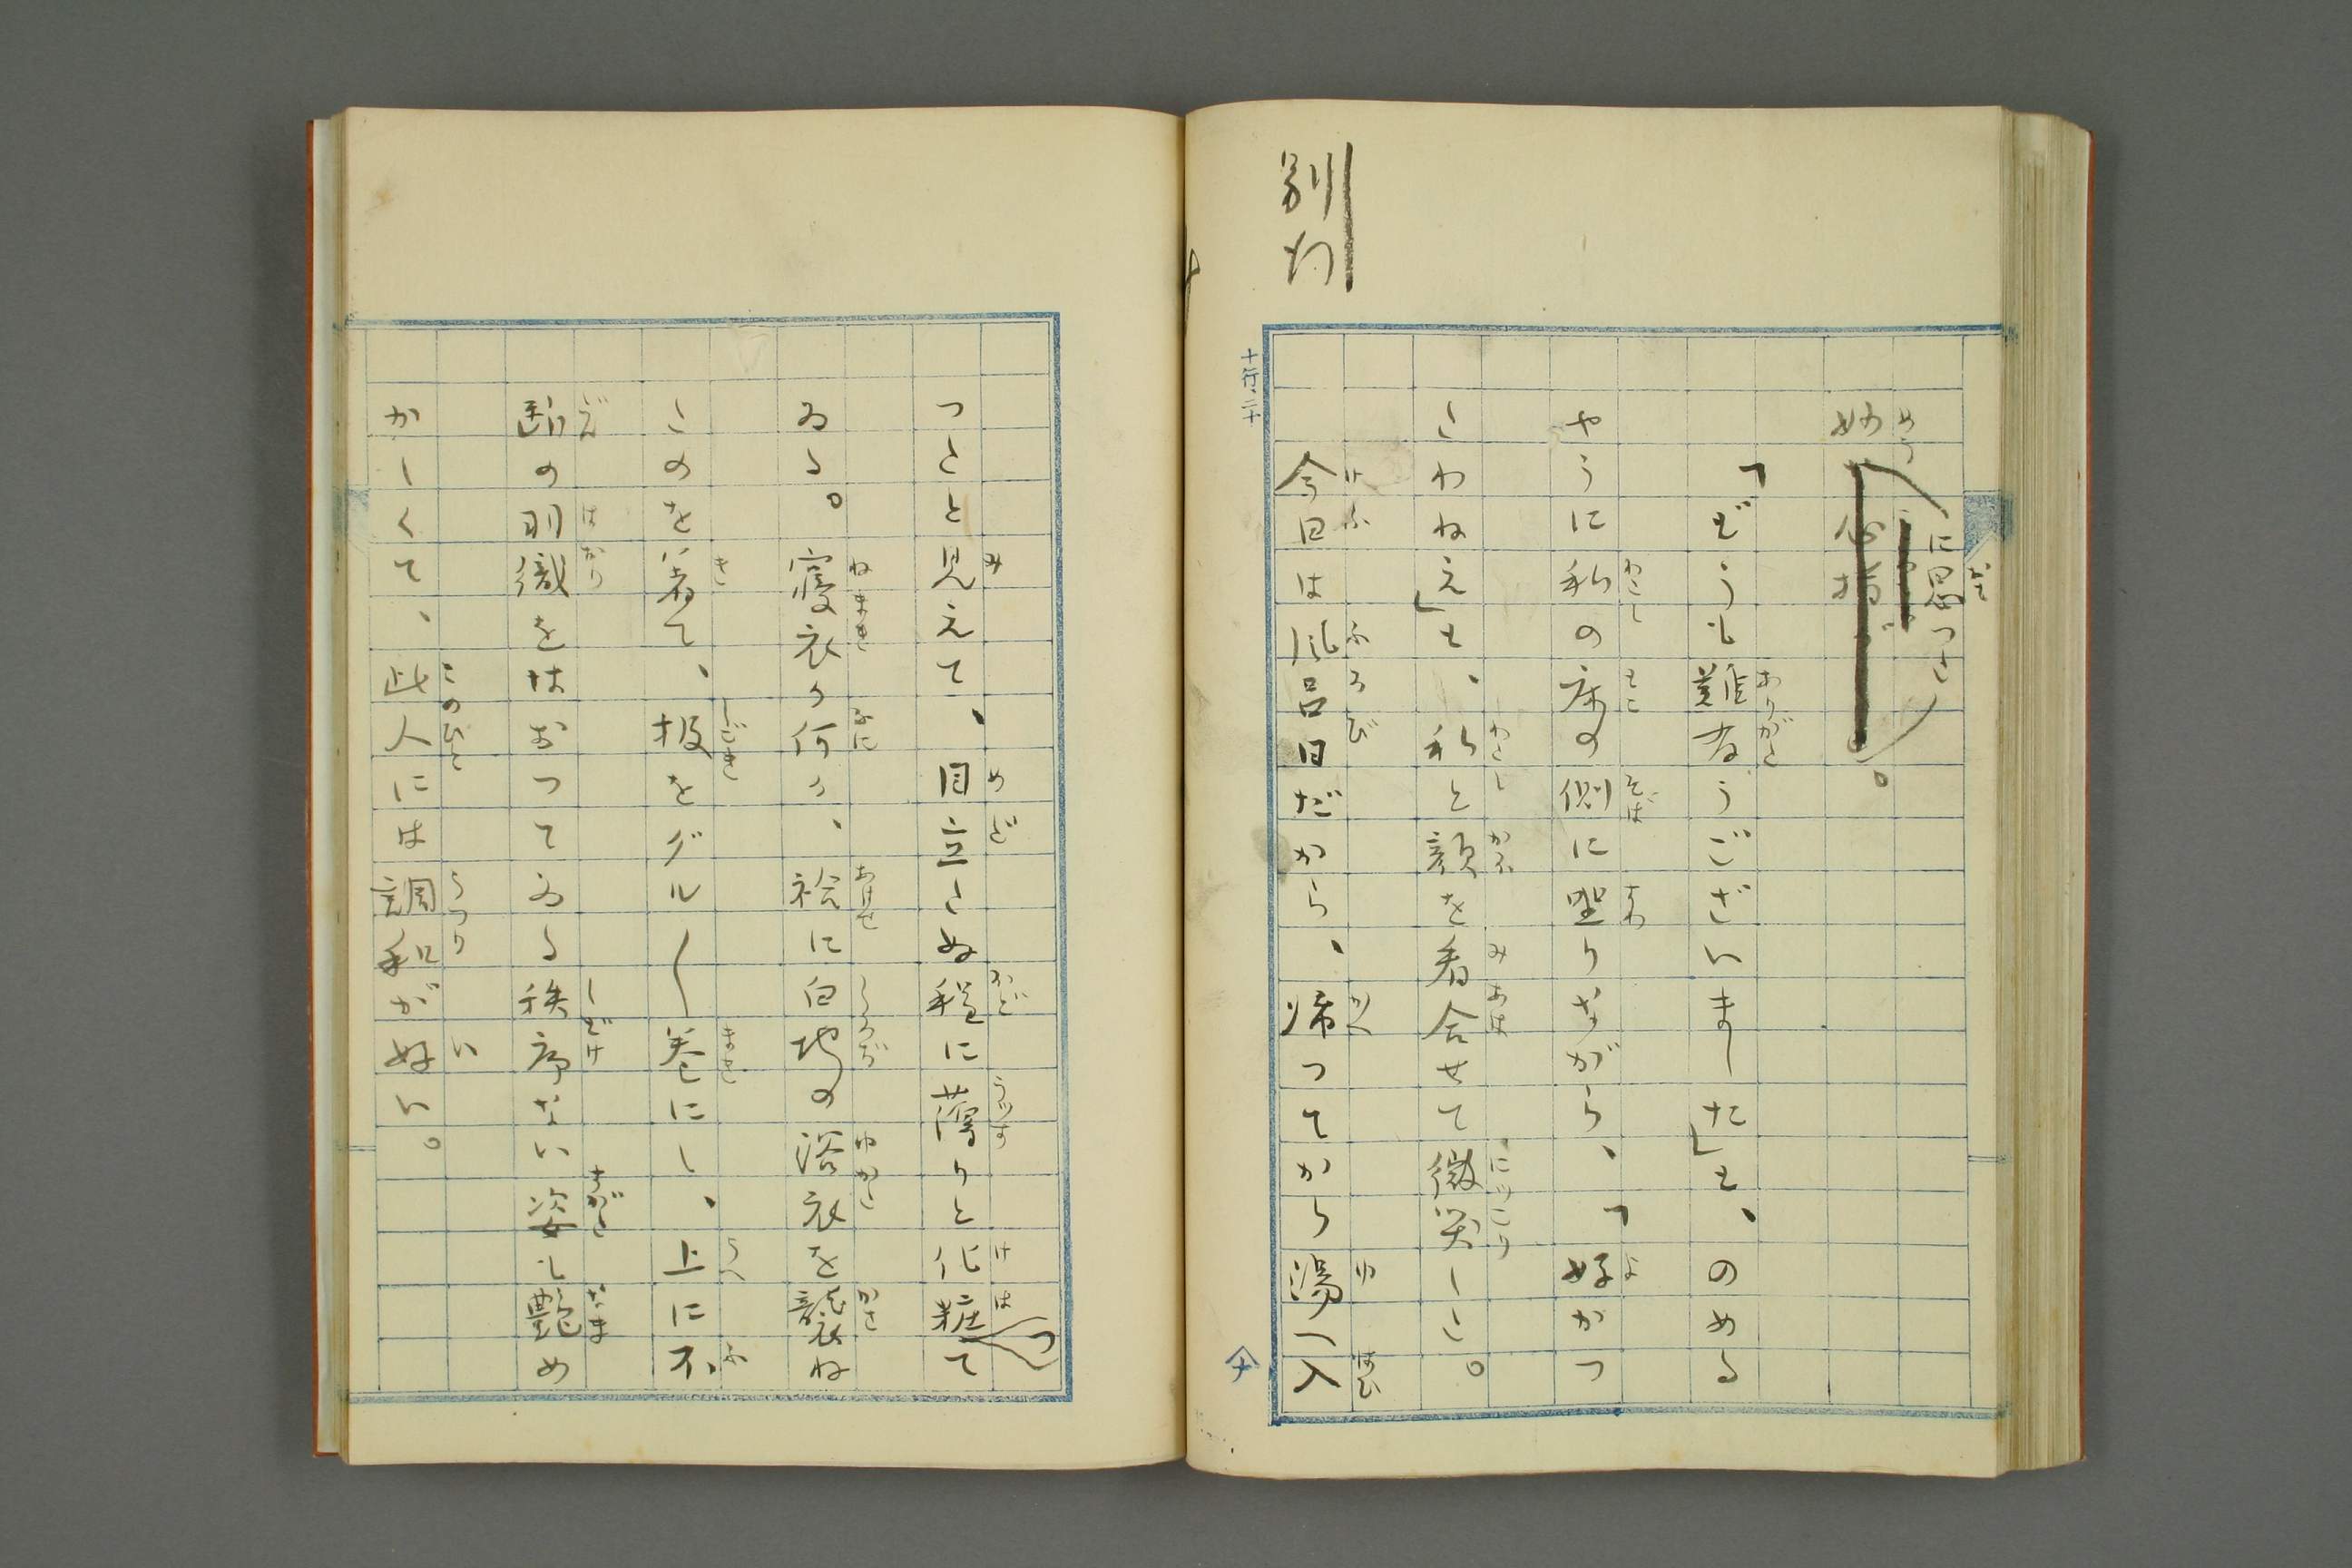 別行
妙に思つた。
「どうも難有うございました」と、のめる
やうに私の床の側に坐りながら、「好かつ
たわねえ」と、私と顔を看合せて微笑した。
今日は風呂日だから、帰つてから湯へ入
十行、二十
つたと見えて、目立たぬ程に薄りと化粧つて
ゐる。寝衣か何か、袷に白地の浴衣を襲ね
たのを着て、扱をグル〳〵巻にし、上に不
断の羽織をはおつてゐる秩序ない姿も艶め
かしくて、此人には調和が好い。